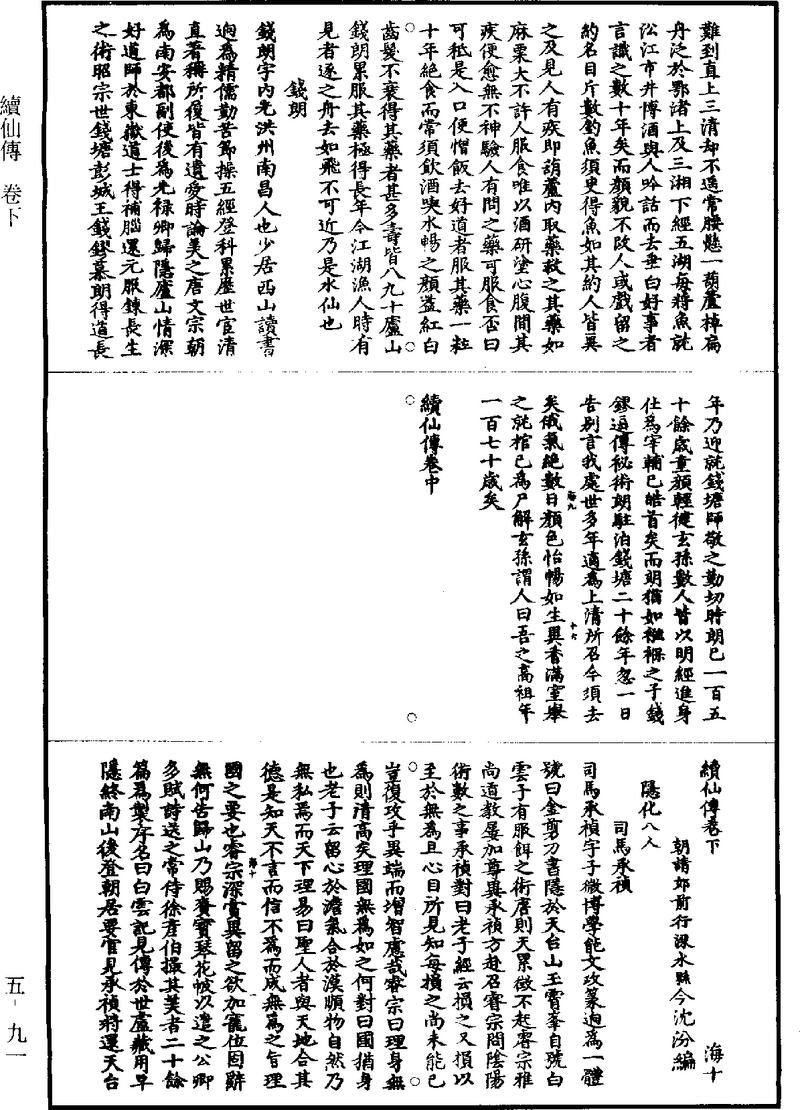 續仙傳 卷下
五-九一
難到直上三清却不過常腰懸一葫蘆棹扁
舟泛於鄂渚上及三湘下經五湖每將魚就
淞江市井博酒與人吟話而去垂白好事者
言識之數十年矣而顏貌不改人或戲留之
約名目斤數釣魚須臾得魚如其約人皆異
之及見人有疾即葫蘆內取藥救之其藥如
麻栗大不許人服食唯以酒研塗心腹間其
疾便愈無不神驗人有問之藥可服食否曰
可秪是入口便憎飯去好道者服其藥一粒
十年絕食而常須飲酒與水暢之顏益紅白
齒髮不衰得其藥者甚多壽皆八九十廬山
錢朗累服其藥極得長年今江湖漁人時有
見者逐之舟去如飛不可近乃是水仙也
錢朗
錢朗字內光洪州南昌人也少居西山讀書
迥為精儒勤苦節操五經登科累歷世官清
直著稱所復皆有遺愛時論美之唐文宗朝
為南安都副使後為光祿卿歸隱廬山情深
好道師於東嶽道士得補腦還元服鍊長生
之術昭宗世錢塘彭城王錢鏐慕朗得道長
年乃迎就錢塘師敬之勤切時朗已一百五
十餘歲童顏輕健玄孫數人皆以明經進身
仕為宰輔已皓首矣而朗猶如襁褓之子錢
鏐逼傳秘術朗駐泊錢塘二十餘年忽一日
告別言我處世多年適為上清所召今須去
矣俄氣絕數日顏色怡暢如生異香滿室舉
之就棺已為尸解玄孫謂人曰吾之高祖年
一百七十歲矣
續仙傳卷中
續仙傳卷下 海十
朝請郎前行溧水縣令沈汾編
隱化八人
司馬承禎
司馬承禎字子微博學能文攻篆迥為一體
號曰金剪刀書隱於天台山玉霄峯自號白
雲子有服餌之術唐則天累徵不起睿宗雅
尚道教屢加尊異承禎方赴召睿宗問陰陽
術數之事承禎對曰老子經云損之又損以
至於無為且心目所見知每損之尚未能已
豈復攻乎異端而增智慮哉睿宗曰理身無
為則清高矣理國無為如之何對曰國猶身
也老子云留心於澹氣合於漠順物自然乃
無私焉而天下理易曰聖人者與天地合其
德是知天不言而信不為而成無為之旨理
國之要也睿宗深賞異留之欲加寵位固辭
無何告歸山乃賜賚寶琴花帔以遣之公卿
多賦詩送之常侍徐彥伯撮其美者二十餘
篇為製序名曰白雲記見傳於世盧藏用早
隱終南山後登朝居要官見承禎將還天台